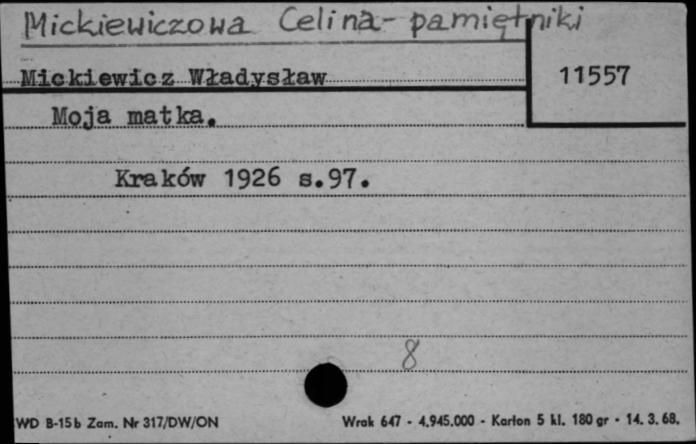 Mickiewiczowa Celina - pamiętniki
Mickiewicz Władysław
11557
Moja matka.
Kraków 1926 s.97.
8
WD B-15b Zam. Nr 317/DW/ON
Wrak 647 - 4.945.000 - Karton 5 kl. 180 gr - 14. 3. 68.